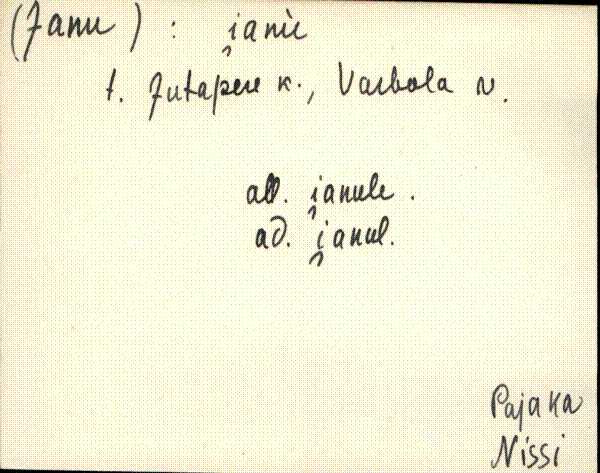 (Janu) : i̯anù
t. Jutapere k., Varbola v.
all. i̯anule.
ad. i̯anul.
Pajaka
Nissi